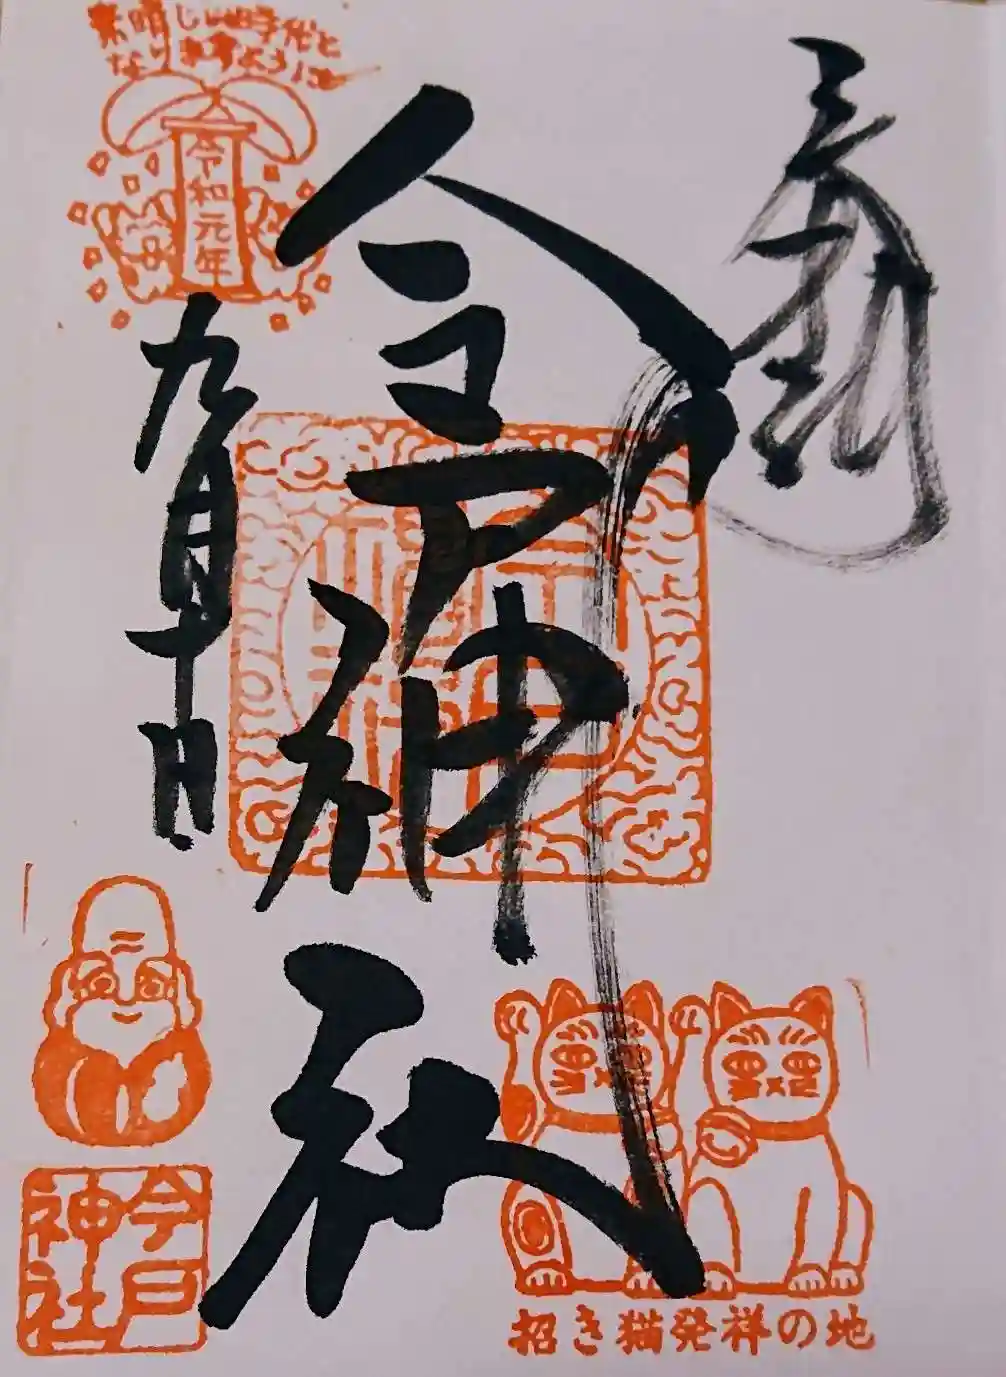 奉拝
今戸神社
素晴しい時代と
なりますように
令和元年
九月十日
今戸
神社
招き猫発祥の地